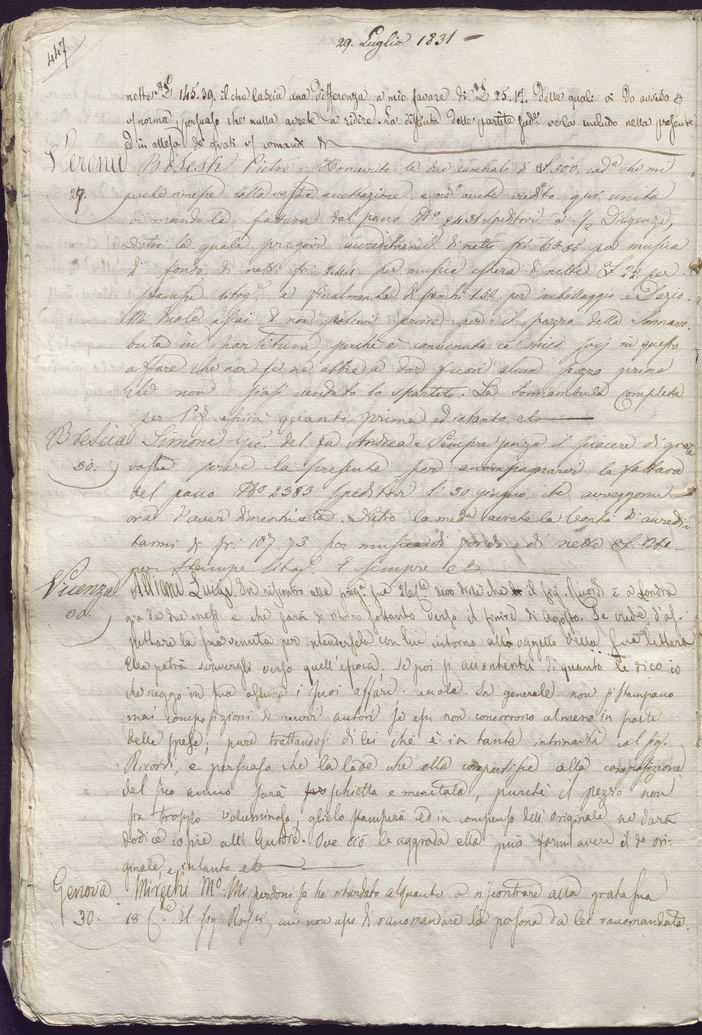 447
29. Luglio 1831
nette £ 145.39. il che lascia una differenza a mio favore di £ 25.17. delle quali vi do avviso
norma, persuaso che nulla avrete a ridire. La distinta delle partite ve la includo nella presente
ed in attesa de' quali comandi
Verona
29.
Pietro. Ricevuto le due cambiali di 300. che mi
avete rimesse colla vostra accettazione, e unita
vi mando la fattura del pacco N.° 2431 speditovi a 1/2 Diligenza,
Dietro la quale pregovi accreditarmi di netti fri. 63.85 per musica
di fondo di netti fri. per musica estera di netti £ 22 per
stampe litog. e finalmente di franchi 1.50 per imballaggio e Dazio.
Mi duole assai di non potervi per ora il pezzo della Sonnam-
bula in partitura, perchè è convenuto co' miei socj in questo
affare che non se ne abbia a dar fuori alcun pezzo prima
che non siasi venduto lo spartito. La Sonnambula completa
per quanto prima ed intanto
Brescia
30.
Simoni Gio. del fu Andrea. Sempre senza il piacere di grata
vostra serve la presente per accompagnarvi la fattura
del pacco N.° 2383 speditovi li 30 giugno, che avveggomi
ora d'aver dimenticata. Dietro la med.a avrete la bontà di accredi-
tarmi di fri. 107.73 per musica di fondo e di nette
per stampe litog. E sempre
Vicenza
30.
Luigi. In riscontro alla preg. sua 26 dirle che il sig. Ricordi è a Londra
già da due mesi e che sarà di ritorno soltanto verso il finire di agosto. Se crede d'as-
pettare la sua venuta per intendersela con lui intorno all'oggetto della sua lettera
Ella potrà scrivergli verso quell'epoca. Se poi si accontenta di quanto le dico io
che reggo in sua assenza i suoi affari. In generale non si stampano
mai composizioni di nuovi autori se essi non concorrono almeno in parte
delle spese; pure trattandosi di lei che è in tanta intrinsichezza col sig.
Ricordi, e persuaso che la lode che ella compartisce alla composizione
del suo amico sarà schietta e meritata, purchè il pezzo non
sia troppo voluminoso, glielo stamperò ed in compenso dell'originale ne darà
dodici copie all'Autore. Ove ciò le aggrada ella può farmi avere il do ori-
ginale e intanto
Genova
30.
Mirecki M.° Mi perdoni se ho ritardato alquanto a riscontrare alla grata sua
18 Il sig. Rossi, cui non uopo di raccomandare la persona da lei raccomandata